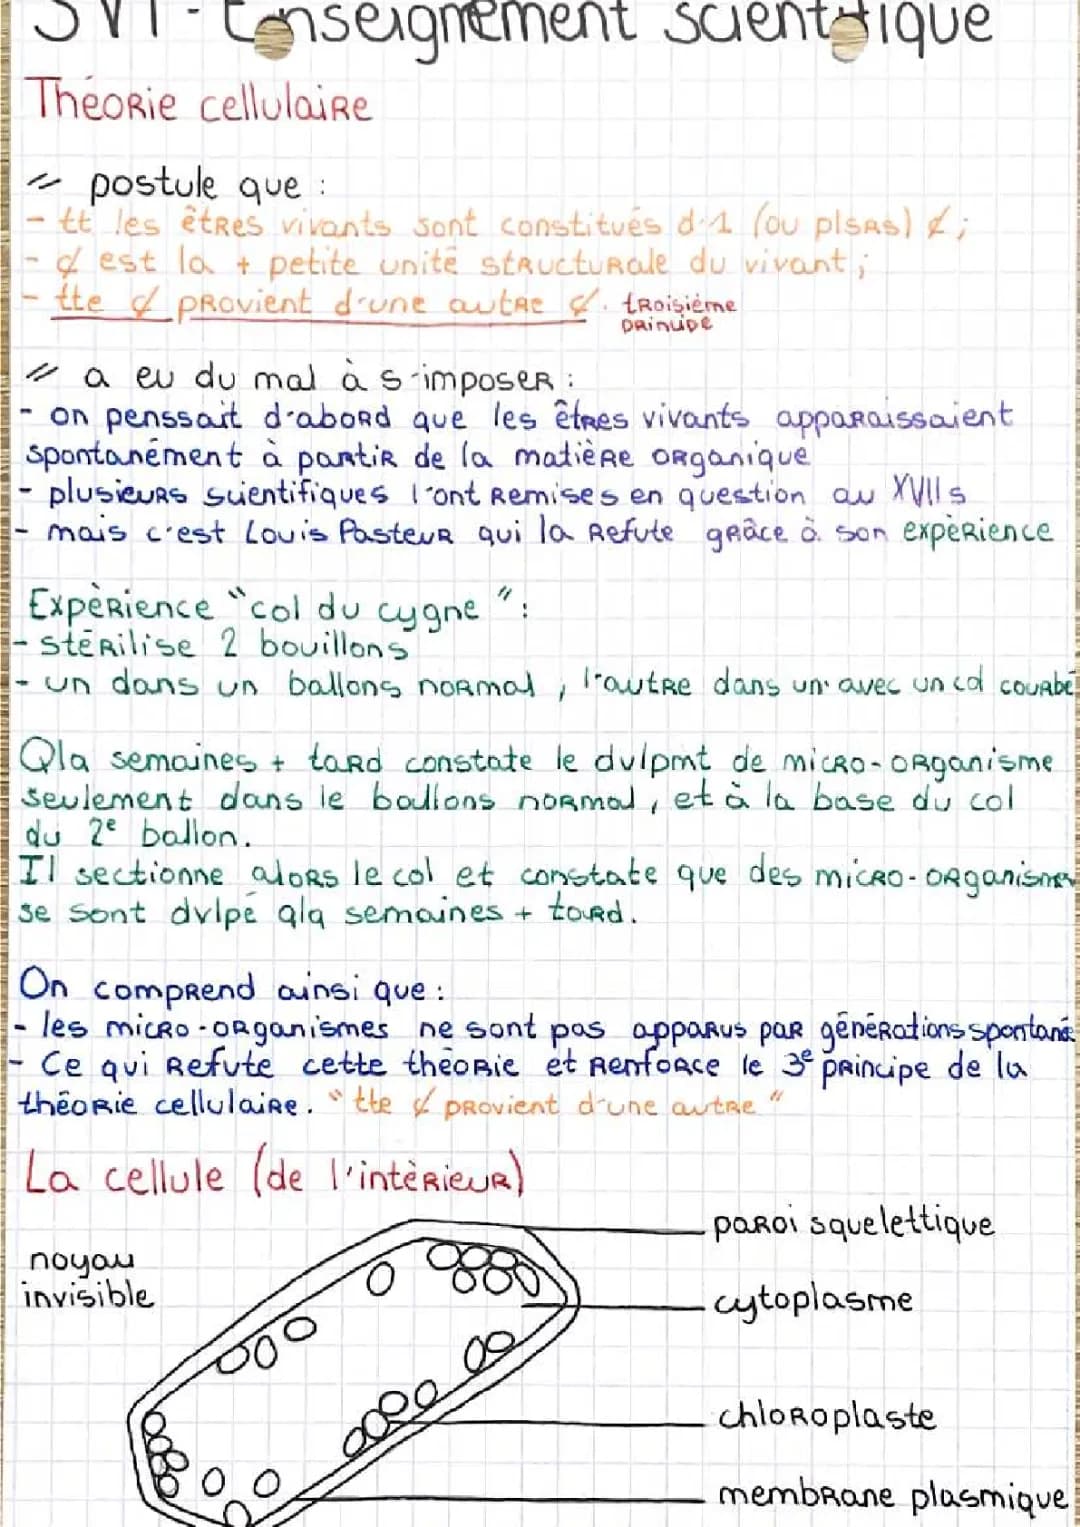 SVT - Enseignement scientifique
Théorie cellulaire
〃 postule que :
- tt les êtres vivants sont constitués d'1 (ou plsrs) ¢ ;
- ¢ est la + petite unité structurale du vivant ;
- tte ¢ provient d'une autre ¢. troisième
principe
〃 a eu du mal à s'imposer :
- on penssait d'abord que les êtres vivants apparaissaient
spontanément à partir de la matière organique
- plusieurs scientifiques l'ont remises en question au XVII s
- mais c'est Louis Pasteur qui la refute grâce à son expèrience
Expèrience "col du cygne" :
- stérilise 2 bouillons
- un dans un ballons normal, l'autre dans un avec un col courbé
Qlq semaines + tard constate le dvlpmt de micro-organisme
seulement dans le ballons normal, et à la base du col
du 2e ballon.
Il sectionne alors le col et constate que des micro-organismes
se sont dvlpé qlq semaines + tard.
On comprend ainsi que :
- les micro-organismes ne sont pas apparus par générations spontané
- Ce qui refute cette théorie et renforce le 3e principe de la
théorie cellulaire. "tte ¢ provient d'une autre"
La cellule (de l'intèrieur)
paroi squelettique
noyau
invisible
cytoplasme
chloroplaste
membrane plasmique